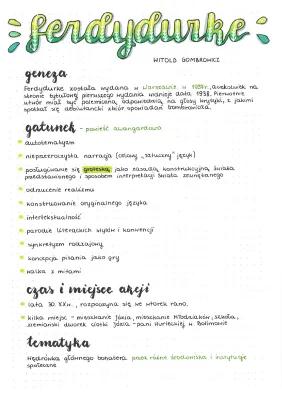 ferdydurke
WITOLD GOMBROWICZ
geneza
Ferdydurke została wydana w Warszawie w 1937r. Aczkolwiek na
stronie tytułowej pierwszego wydania widnieje data 1938. Pierwotnie
utwór miał być polemiczną odpowiedzią na głosy krytyki, z jakimi
spotkał się debiutancki zbiór opowiadań Gombrowicza.
gatunek - powieść awangardowa
autotematyzm
nieprzezroczysta narracja (celowy „sztuczny" język)
posługiwanie się groteską jako zasadą konstrukcyjną świata
przedstawionego i sposobem interpretacji świata zewnętrznego
odrzucenie realizmu
konstruowanie oryginalnego języka
intertekstualność
parodie literackich stylów i konwencji
synkretyzm rodzajowy
koncepcja pisania jako gry
walka z mitami
czas i miejsce akcji
lata 30. XXw., rozpoczyna się we wtorek rano.
kilka miejsc - mieszkanie Józia, mieszkanie Młodziaków, szkoła,
ziemiański dworek ciotki Józia - pani Hurleckiej w Bolimowie
tematyka
Wędrówka głównego bohatera przez różne środowiska i instytucje
społeczne